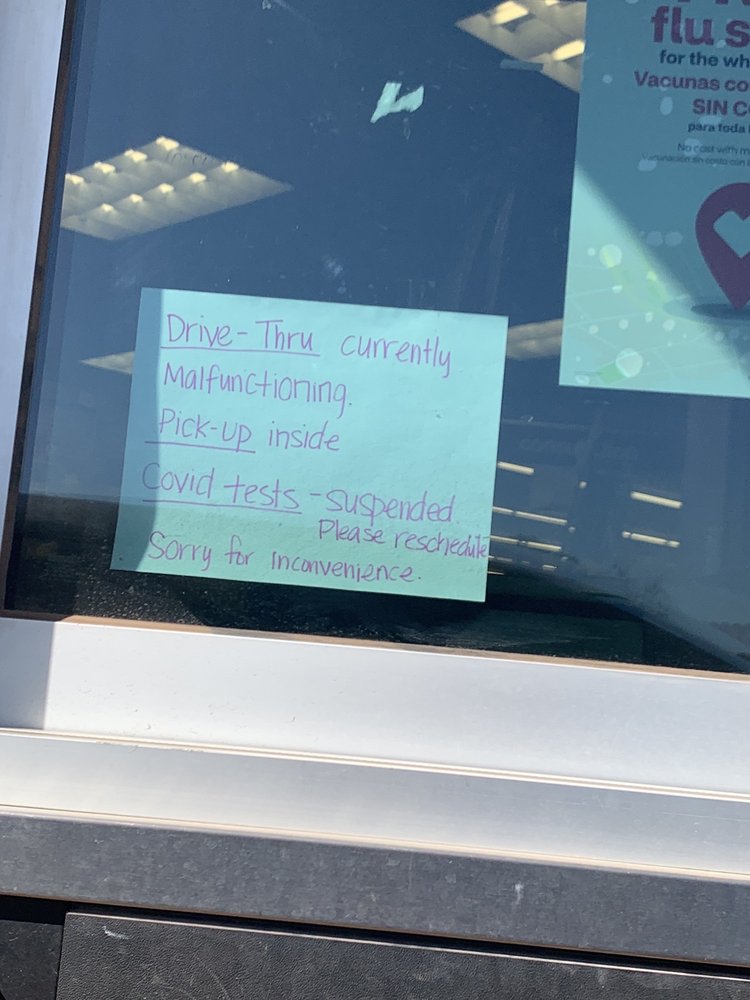 flu s
for the wh
Vacunas co
SIN C
para toda
No cost with m
Vacunación sin costo con
Drive-Thru currently
Malfunctioning.
Pick-up inside
Covid tests - suspended.
Please reschedule
Sorry for inconvenience.